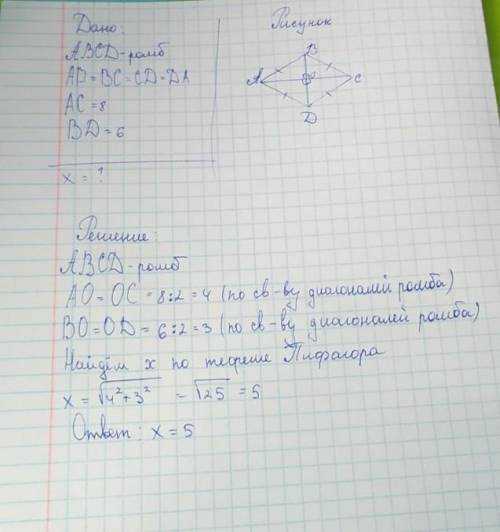 Дано:
Рисунок
ABCD-ромб
AB=BC=CD=DA
AC=8
BD=6
x=?
B
A
O
C
D
Решение:
ABCD-ромб
AO=OC=8:2=4 (по св-ву диагоналей ромба)
BO=OD=6:2=3 (по св-ву диагоналей ромба)
Найдём x по теореме Пифагора
x=√4²+3² =√25=5
Ответ: x=5